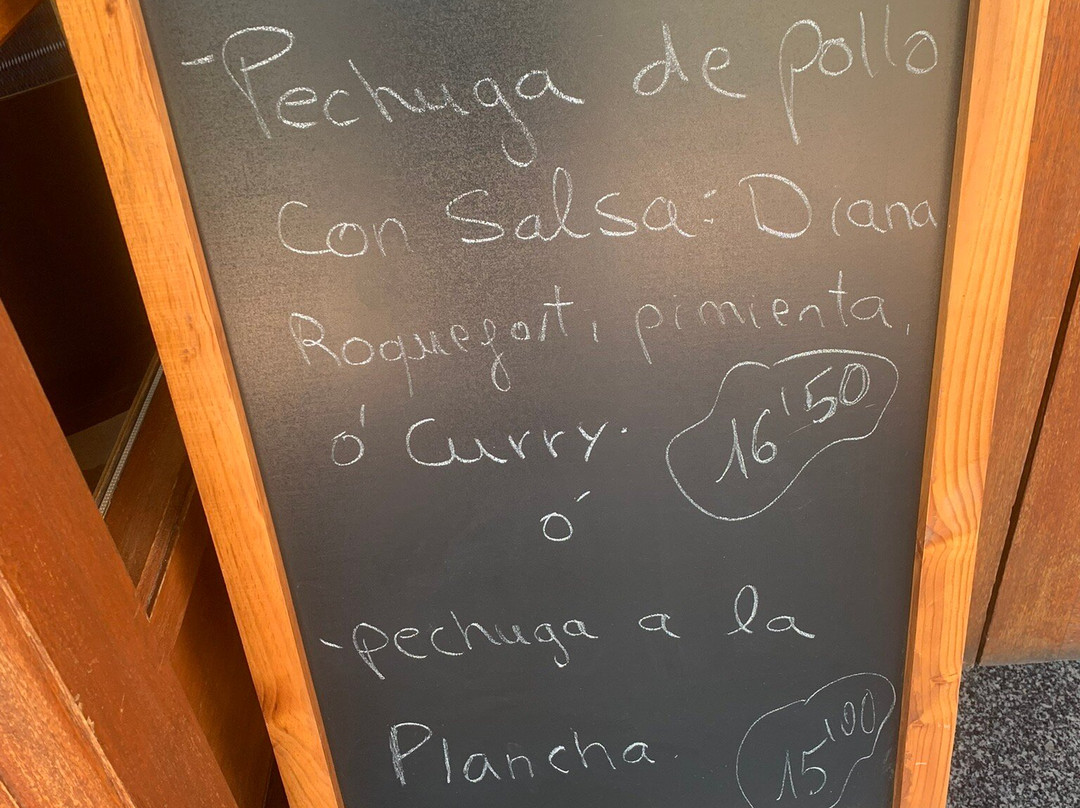 -Pechuga de pollo
Con Salsa: Diana
Roquefort, pimienta,
ó Curry. 16'50
ó
-pechuga a la
Plancha. 15'00